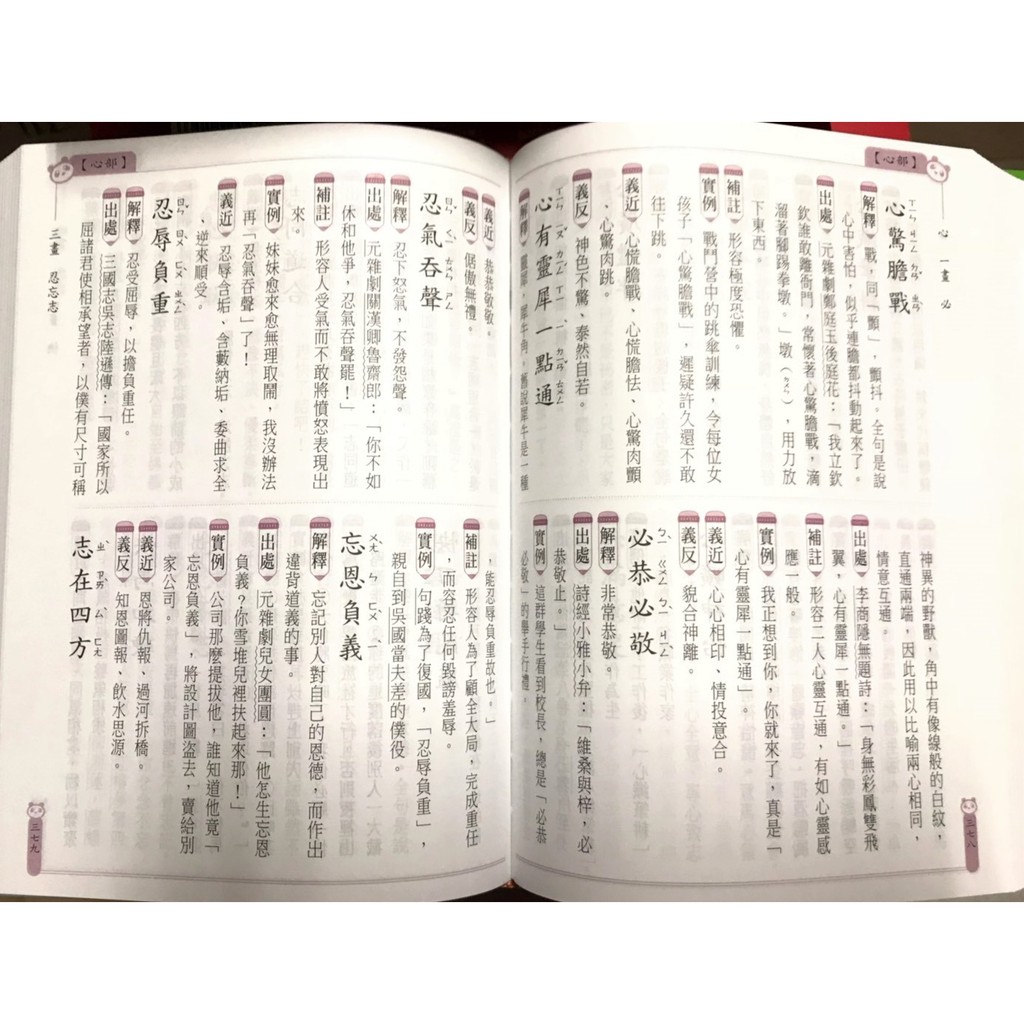 【心部】
心 一畫 必
心驚膽戰
ㄒㄧㄣ ㄐㄧㄥ ㄉㄢˇ ㄓㄢˋ
解釋 戰,同「顫」,顫抖。全句是說
心中害怕,似乎連膽都抖動起來了。
出處 元雜劇鄭庭玉後庭花:「我立欽
欽誰敢離衙門,常懷著心驚膽戰,滴
溜著腳踢拳墩。」墩(ㄉㄨㄣ),用力放
下東西。
補註 形容極度恐懼。
實例 戰鬥營中的跳傘訓練,令每位女
孩子「心驚膽戰」,遲疑許久還不敢
往下跳。
義近 心慌膽戰、心慌膽怯、心驚肉顫
、心驚肉跳。
義反 神色不驚、泰然自若。
心有靈犀一點通
ㄒㄧㄣ ㄧㄡˇ ㄌㄧㄥˊ ㄒㄧ ㄧ ㄉㄧㄢˇ ㄊㄨㄥ
解釋 靈犀,犀牛角,舊說犀牛是一種
神異的野獸,角中有像線般的白紋,
直通兩端,因此用以比喻兩心相同,
情意互通。
出處 李商隱無題詩:「身無彩鳳雙飛
翼,心有靈犀一點通。」
補註 形容二人心靈互通,有如心靈感
應一般。
實例 我正想到你,你就來了,真是「
心有靈犀一點通」。
義近 心心相印、情投意合。
義反 貌合神離。
必恭必敬
ㄅㄧˋ ㄍㄨㄥ ㄅㄧˋ ㄐㄧㄥˋ
解釋 非常恭敬。
出處 詩經小雅小弁:「維桑與梓,必
恭敬止。」
實例 這群學生看到校長,總是「必恭
必敬」的舉手行禮。
三七八
【心部】
三畫 忍忘志
義近 恭恭敬敬。
義反 倨傲無禮。
忍氣吞聲
ㄖㄣˇ ㄑㄧˋ ㄊㄨㄣ ㄕㄥ
解釋 忍下怒氣,不發怨聲。
出處 元雜劇關漢卿魯齋郎:「你不如
休和他爭,忍氣吞聲罷!」
補註 形容人受氣而不敢將憤怒表現出
來。
實例 妹妹愈來愈無理取鬧,我沒辦法
再「忍氣吞聲」了!
義近 忍辱含垢、含藪納垢、委曲求全
、逆來順受。
忍辱負重
ㄖㄣˇ ㄖㄨˋ ㄈㄨˋ ㄓㄨㄥˋ
解釋 忍受屈辱,以擔負重任。
出處 三國志吳志陸遜傳:「國家所以
屈諸君使相承望者,以僕有尺寸可稱
,能忍辱負重故也。」
補註 形容人為了顧全大局,完成重任
,而容忍任何毀謗羞辱。
實例 句踐為了復國,「忍辱負重」,
親自到吳國當夫差的僕役。
忘恩負義
ㄨㄤˋ ㄣ ㄈㄨˋ ㄧˋ
解釋 忘記別人對自己的恩德,而作出
違背道義的事。
出處 元雜劇兒女團圓:「他怎生忘恩
負義?你雪堆兒裡扶起來那!」
實例 公司那麼提拔他,誰知道他竟「
忘恩負義」,將設計圖盜去,賣給別
家公司。
義近 恩將仇報、過河拆橋。
義反 知恩圖報、飲水思源。
志在四方
ㄓˋ ㄗㄞˋ ㄙˋ ㄈㄤ
三七九